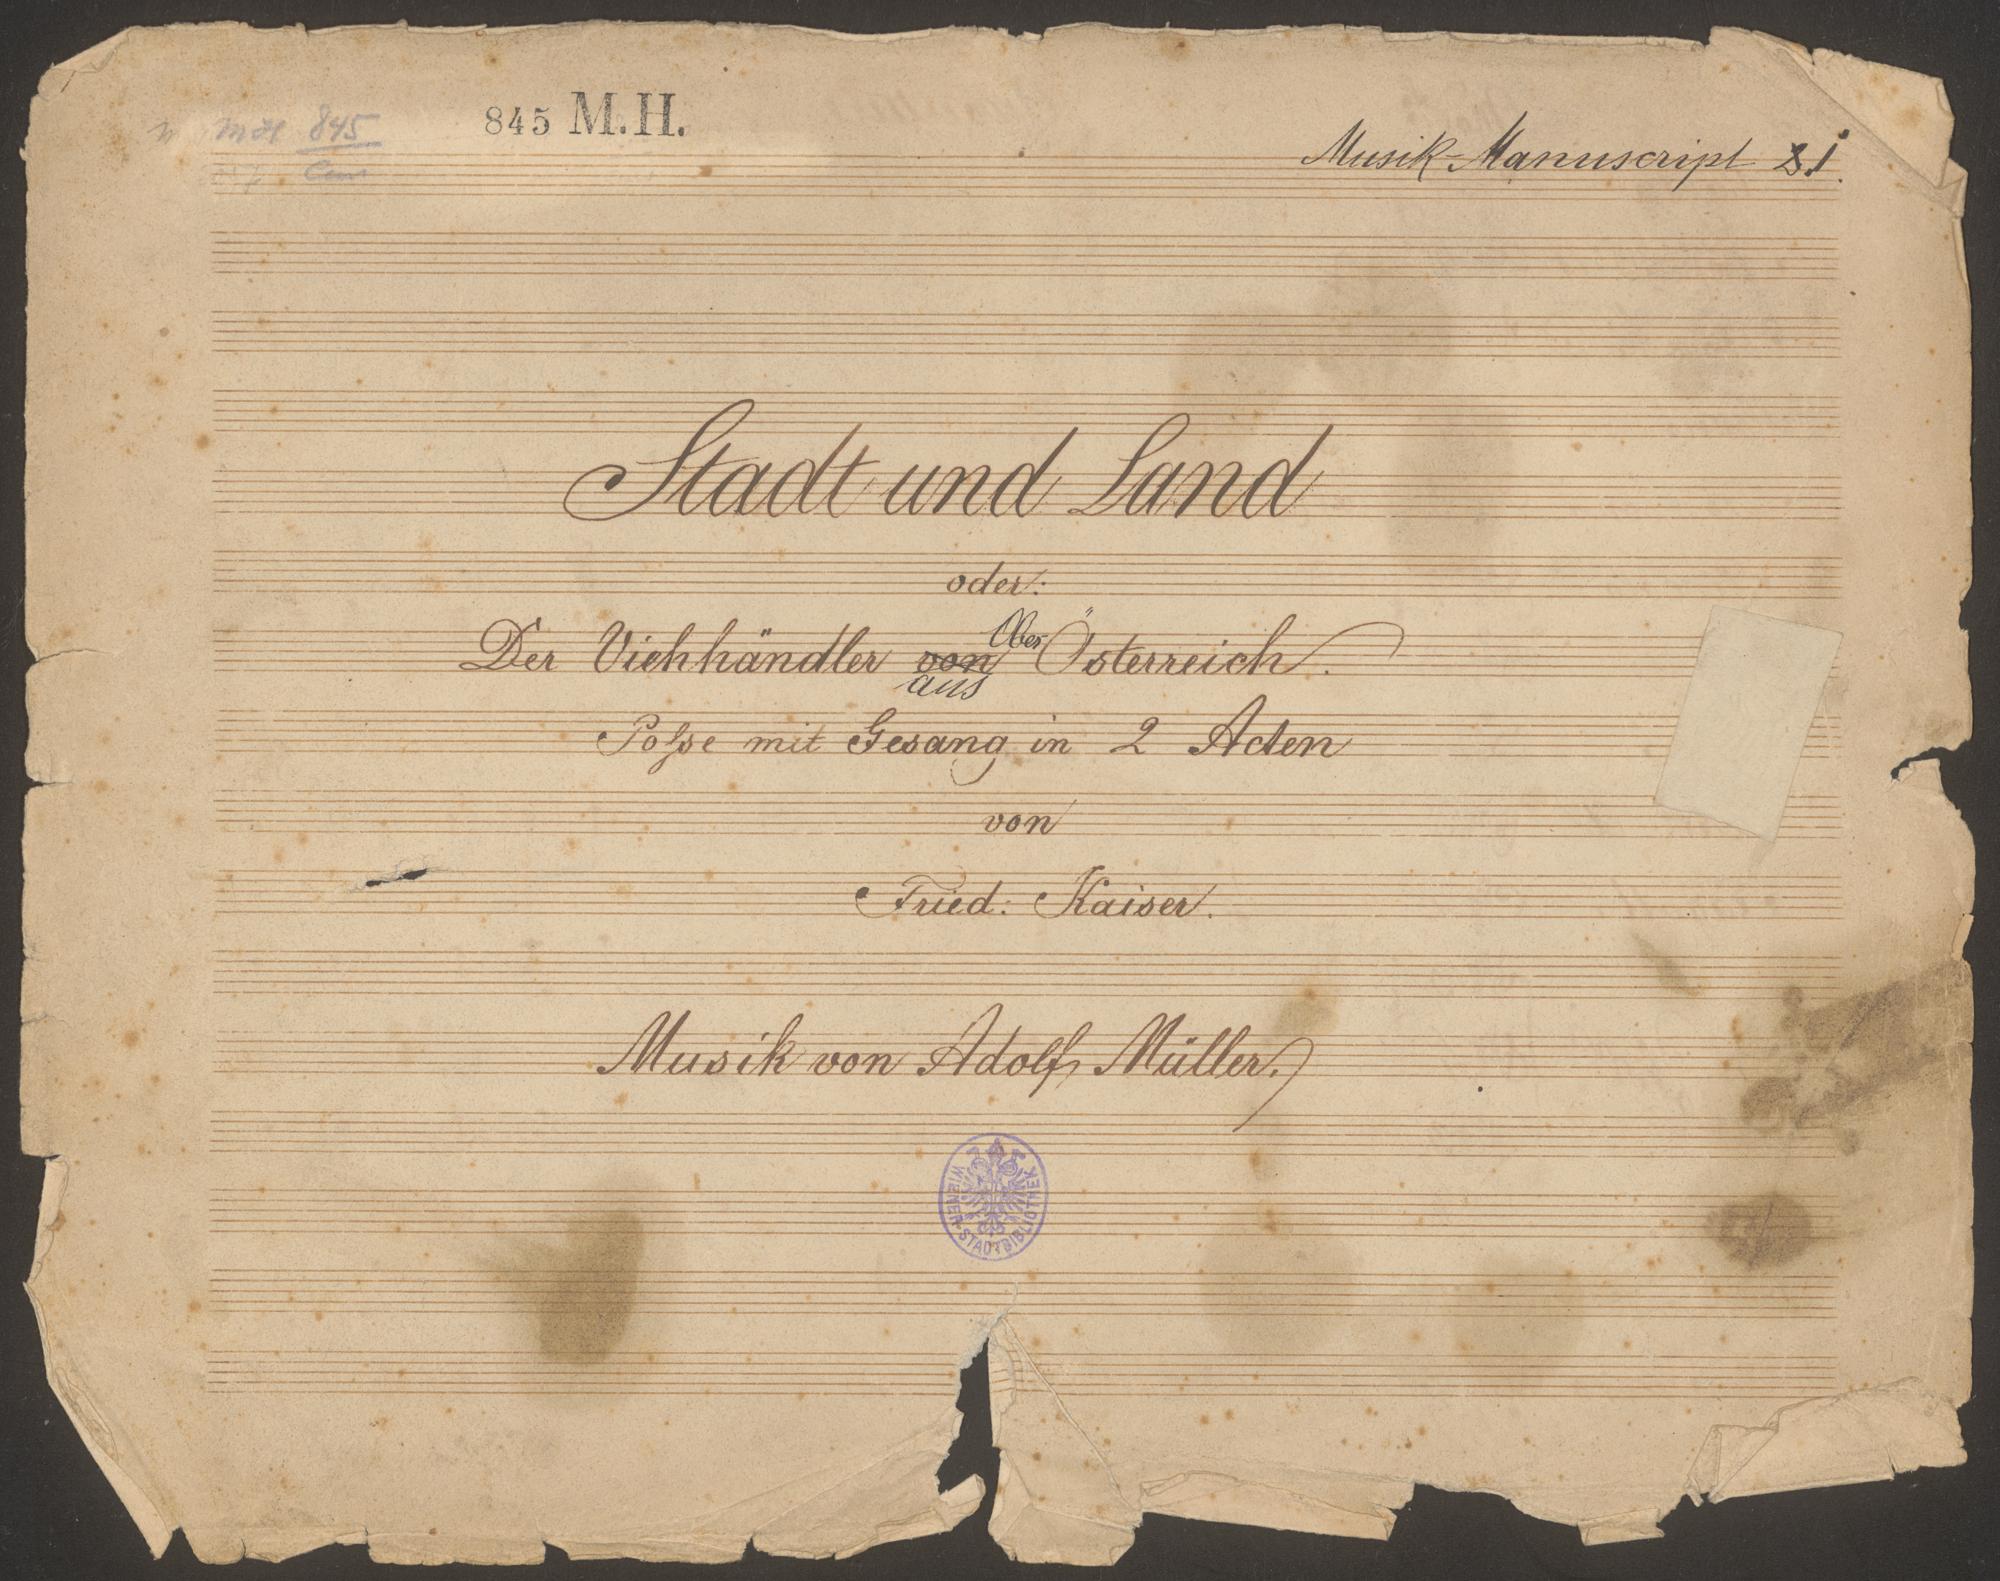 MH 845
845 M. H.
Musik-Manuscript 1.
Stadt und Land
oder:
Ober
Der Viehhändler von Österreich.
aus
Posse mit Gesang in 2 Acten
von
Fried: Kaiser.
Musik von Adolf Müller.
WIENER-STADTBIBLIOTHEK